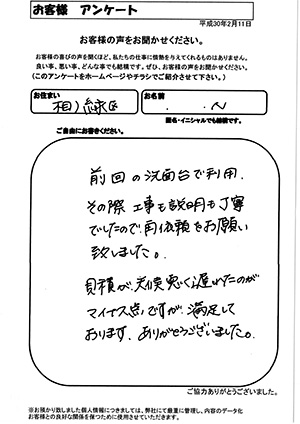 お客様 アンケート
平成30年2月11日
お客様の声をお聞かせください。
お客様の喜びの声を聞くほど、私たちの仕事に情熱を与えてくれるものはありません。
良い事、悪い事、どんな事でも結構です。ぜひ、お客様の声をお聞かせください。
(このアンケートをホームページやチラシでご紹介させて下さい。)
お住まい
お名前
緑区
N
匿名・イニシャルでも結構です。
ご自由にお書きください。
前回の洗面台で利用.
その際工事も説明も丁寧
でしたので再依頼をお願い
致しました。
見積が、天候悪く遅れたのが
マイナス点ですが、満足して
おります、ありがとうございました。
ご協力ありがとうございました。
※お預かり致しました個人情報につきましては、弊社にて厳重に管理し、内容のデータ化
お客様との良好な関係を保つために使用させていただきます。